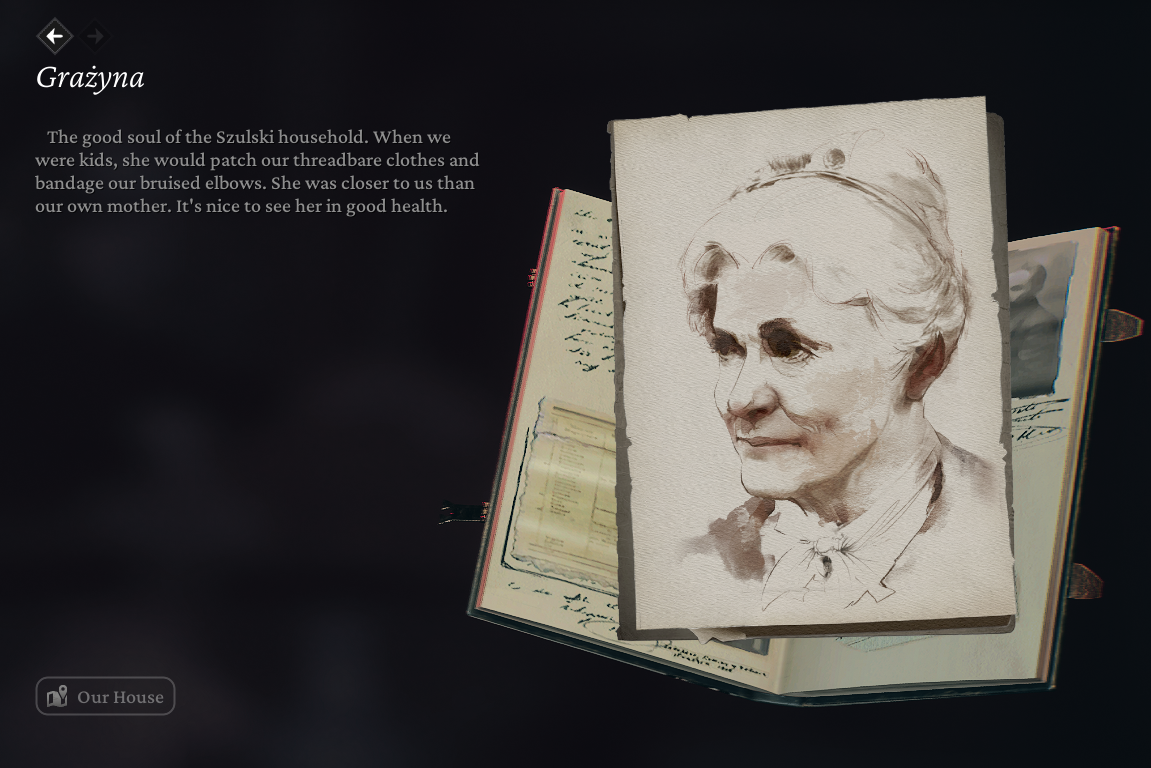 Grażyna
The good soul of the Szulski household. When we
were kids, she would patch our threadbare clothes and
bandage our bruised elbows. She was closer to us than
our own mother. It's nice to see her in good health.
Our House